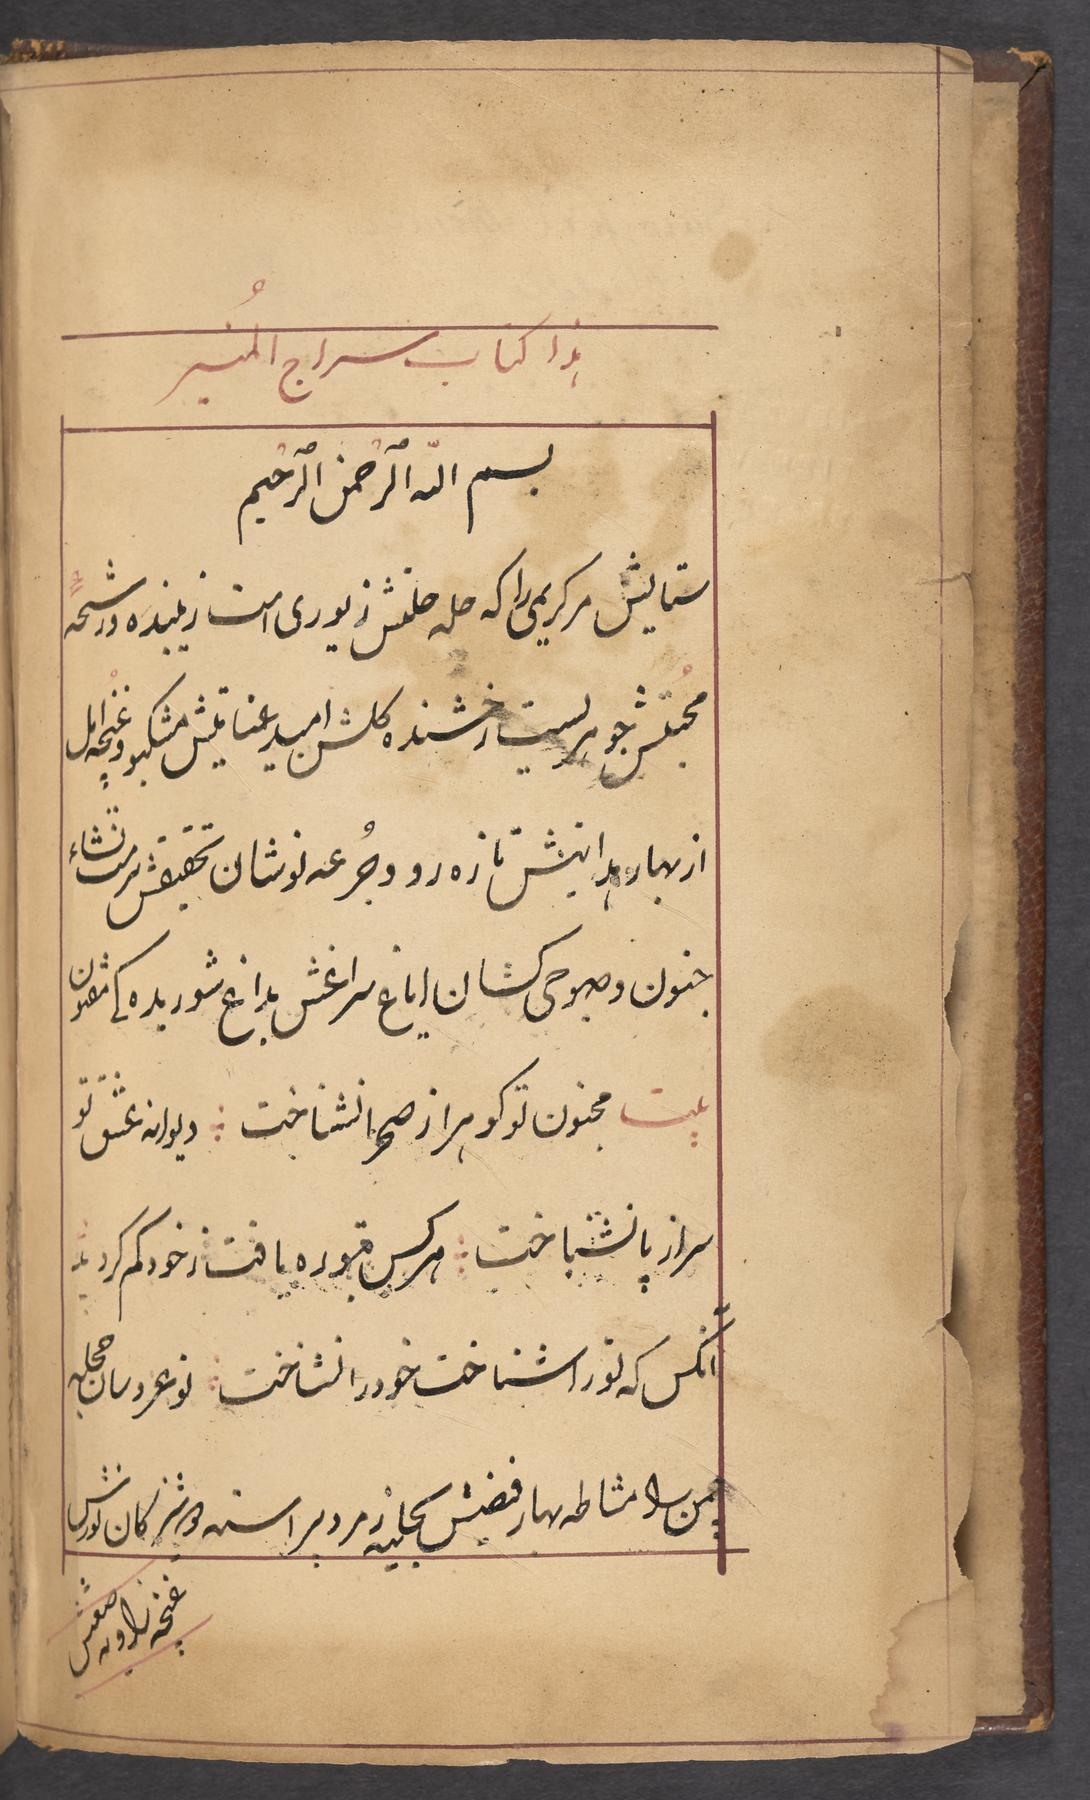 هذا كتاب سراج المُنير
بسم الله الرحمن الرحيم
ستایش مر کریمی را که حله خلقش زیوری است زیبنده و رشحه
محبتش جوهریست رخشنده گلشن امید عنایتش مشکبو و غنچه امل
از بهار هدایتش تازه رو و جُرعه نوشان تحقیقش سرمست نشاء
جنون و صبوحی کشان ایاغ سراغش بداغ شوریده کے مفتون
بیت مجنون تو کوه را ز صحرا نشناخت دیوانه عشق تو
سر از پا نشناخت هر کس بتو ره یافت ز خود کم کردید
آنکس که تو را شناخت خود را نشناخت نو عروسان حجله
چمن را مشاطه بهار فیضش بحلیه زمرد پیراسته و
غنچه را